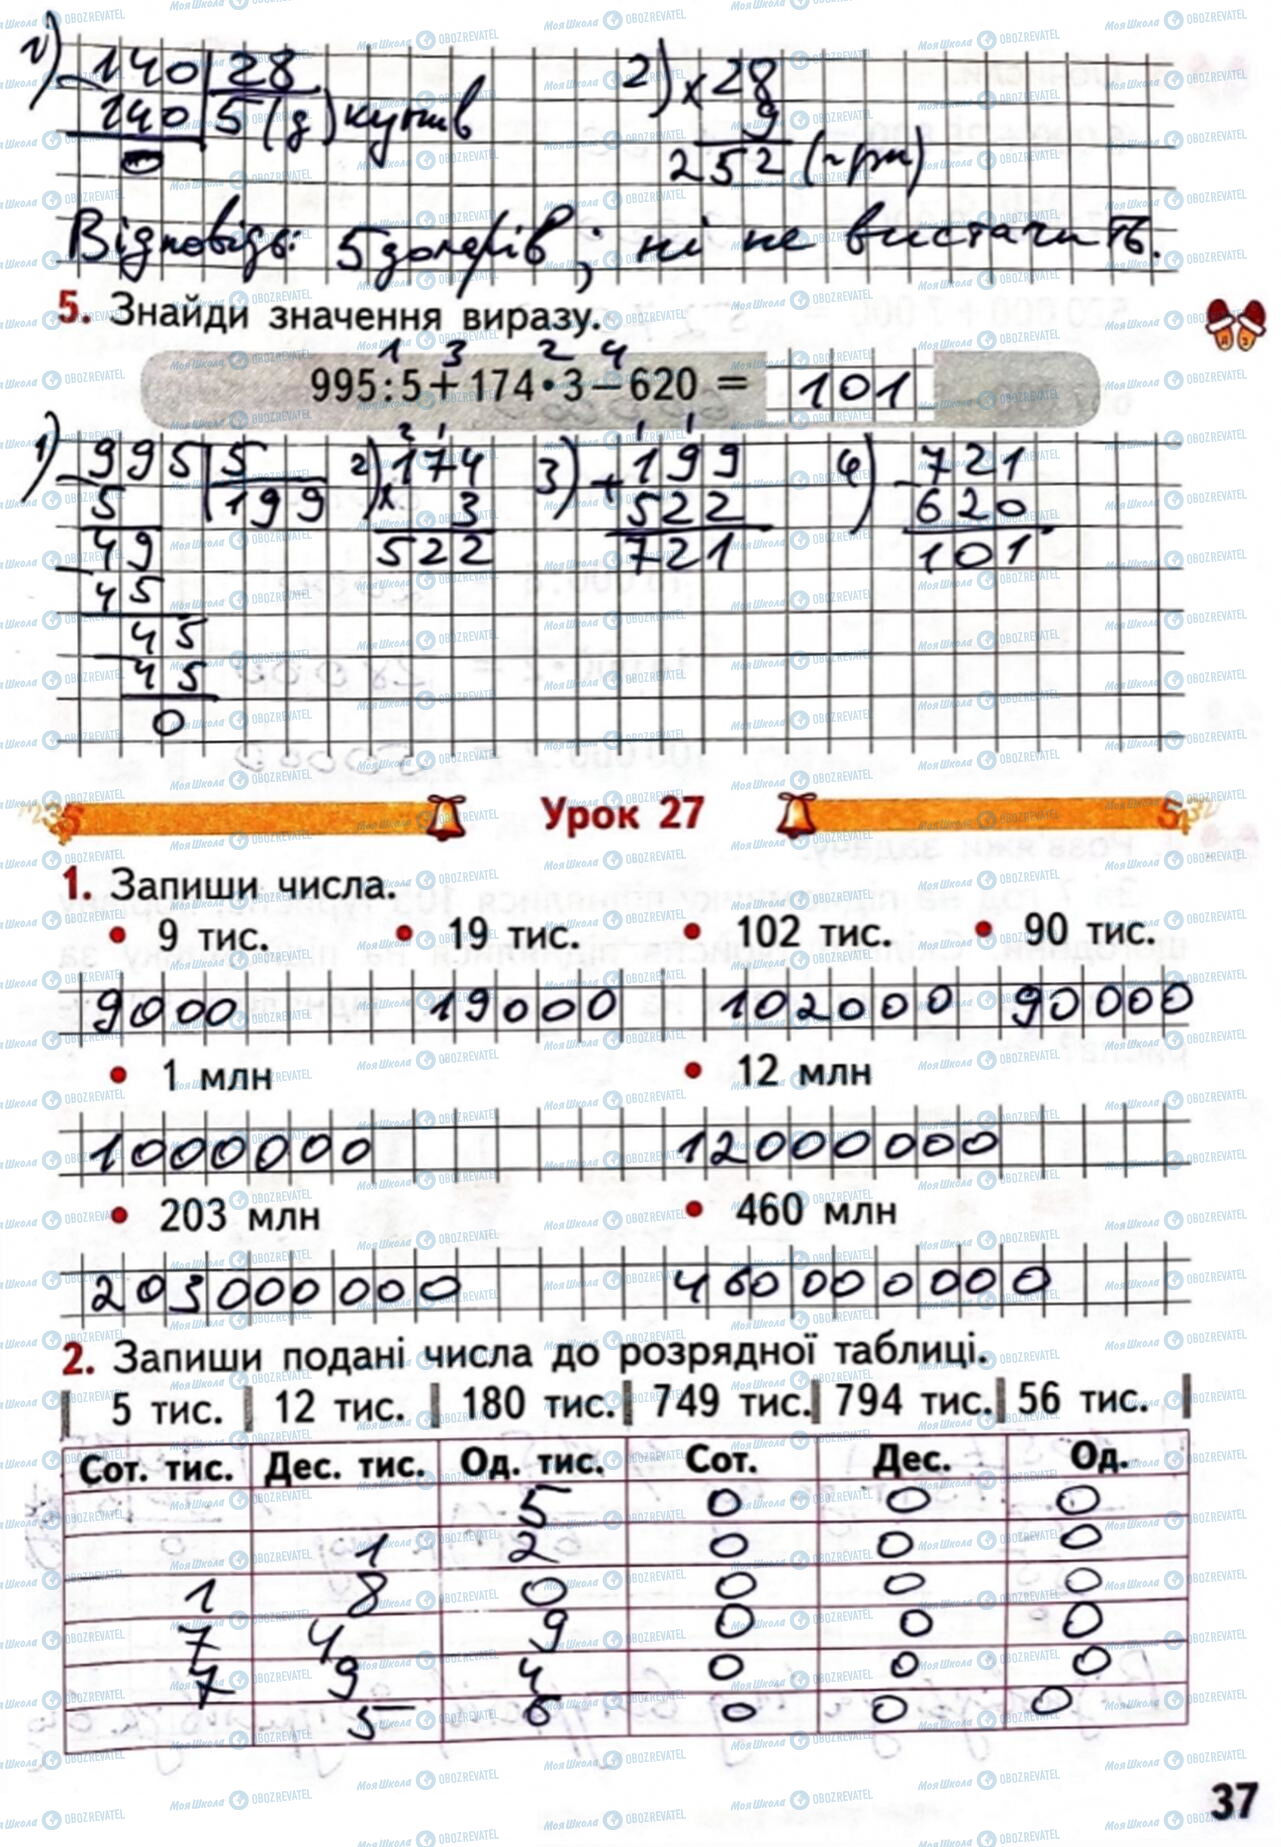 1) 140 | 28 2) × 28
140 | 5 (д) купив 9
0 252 (грн)
Відповідь: 5 доларів; ні не вистачить.
5. Знайди значення виразу.
1 3 2 4
995 : 5 + 174 • 3 − 620 = 101
1) 995 | 5 2) 174 3) 199 4) 721
5 | 199 × 3 + 522 − 620
49 522 721 101
45
45
45
0
Урок 27
1. Запиши числа.
• 9 тис. • 19 тис. • 102 тис. • 90 тис.
9000 19000 102000 90000
• 1 млн • 12 млн
1000000 12000000
• 203 млн • 460 млн
203000000 460000000
2. Запиши подані числа до розрядної таблиці.
5 тис. | 12 тис. | 180 тис. | 749 тис. | 794 тис. | 56 тис.
Сот. тис. Дес. тис. Од. тис. Сот. Дес. Од.
5 0 0 0
1 2 0 0 0
1 8 0 0 0 0
7 4 9 0 0 0
7 9 4 0 0 0
5 6 0 0 0
37
МояШкола OBOZREVATEL